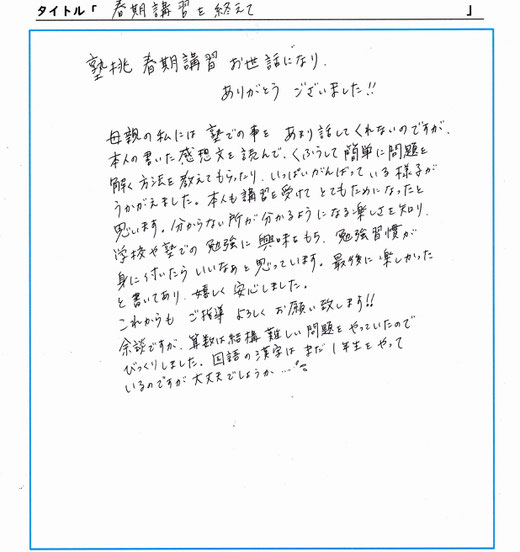 タイトル「 春期講習を終えて 」
塾桃 春期講習 お世話になり、
ありがとう ございました!!
母親の私には 塾での事を あまり話してくれないのですが、
本人の書いた感想文を読んで、くふうして簡単に問題を
解く方法を教えてもらったり、いっぱいがんばっている様子が
うかがえました。本人も講習を受けて とてもためになったと
思います。分からない所が分かるようになる楽しさを知り、
学校や塾での 勉強に 興味をもち、勉強習慣が
身に付いたら いいなぁと思っています。最後に楽しかった
と書いてあり、嬉しく安心しました。
これからも ご指導 よろしく お願い致します!!
余談ですが、算数は結構 難しい 問題を やっていたので
びっくりしました。国語の漢字は まだ 1年生をやって
いるのですが 大丈夫でしょうか……